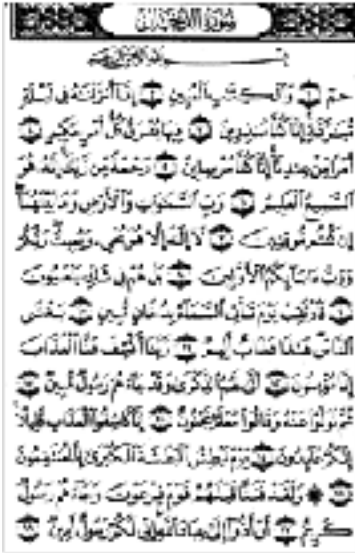 سورة الدخان
بسم الله الرحمن الرحيم
حم ١ والكتب المبين ٢ إنا أنزلنه في ليلة
مبركة إنا كنا منذرين ٣ فيها يفرق كل أمر حكيم ٤
أمرا من عندنا إنا كنا مرسلين ٥ رحمة من ربك إنه هو
السميع العليم ٦ رب السموت والأرض وما بينهما
إن كنتم موقنين ٧ لا إله إلا هو يحي ويميت ربكم
ورب ءابائكم الأولين ٨ بل هم في شك يلعبون
٩ فارتقب يوم تأتي السماء بدخان مبين ١٠ يغشى
الناس هذا عذاب أليم ١١ ربنا اكشف عنا العذاب
إنا مؤمنون ١٢ أنى لهم الذكرى وقد جاءهم رسول مبين ١٣
ثم تولوا عنه وقالوا معلم مجنون ١٤ إنا كاشفوا العذاب قليلا
إنكم عائدون ١٥ يوم نبطش البطشة الكبرى إنا منتقمون
١٦ ۞ ولقد فتنا قبلهم قوم فرعون وجاءهم رسول
كريم ١٧ أن أدوا إلي عباد الله إني لكم رسول أمين ١٨